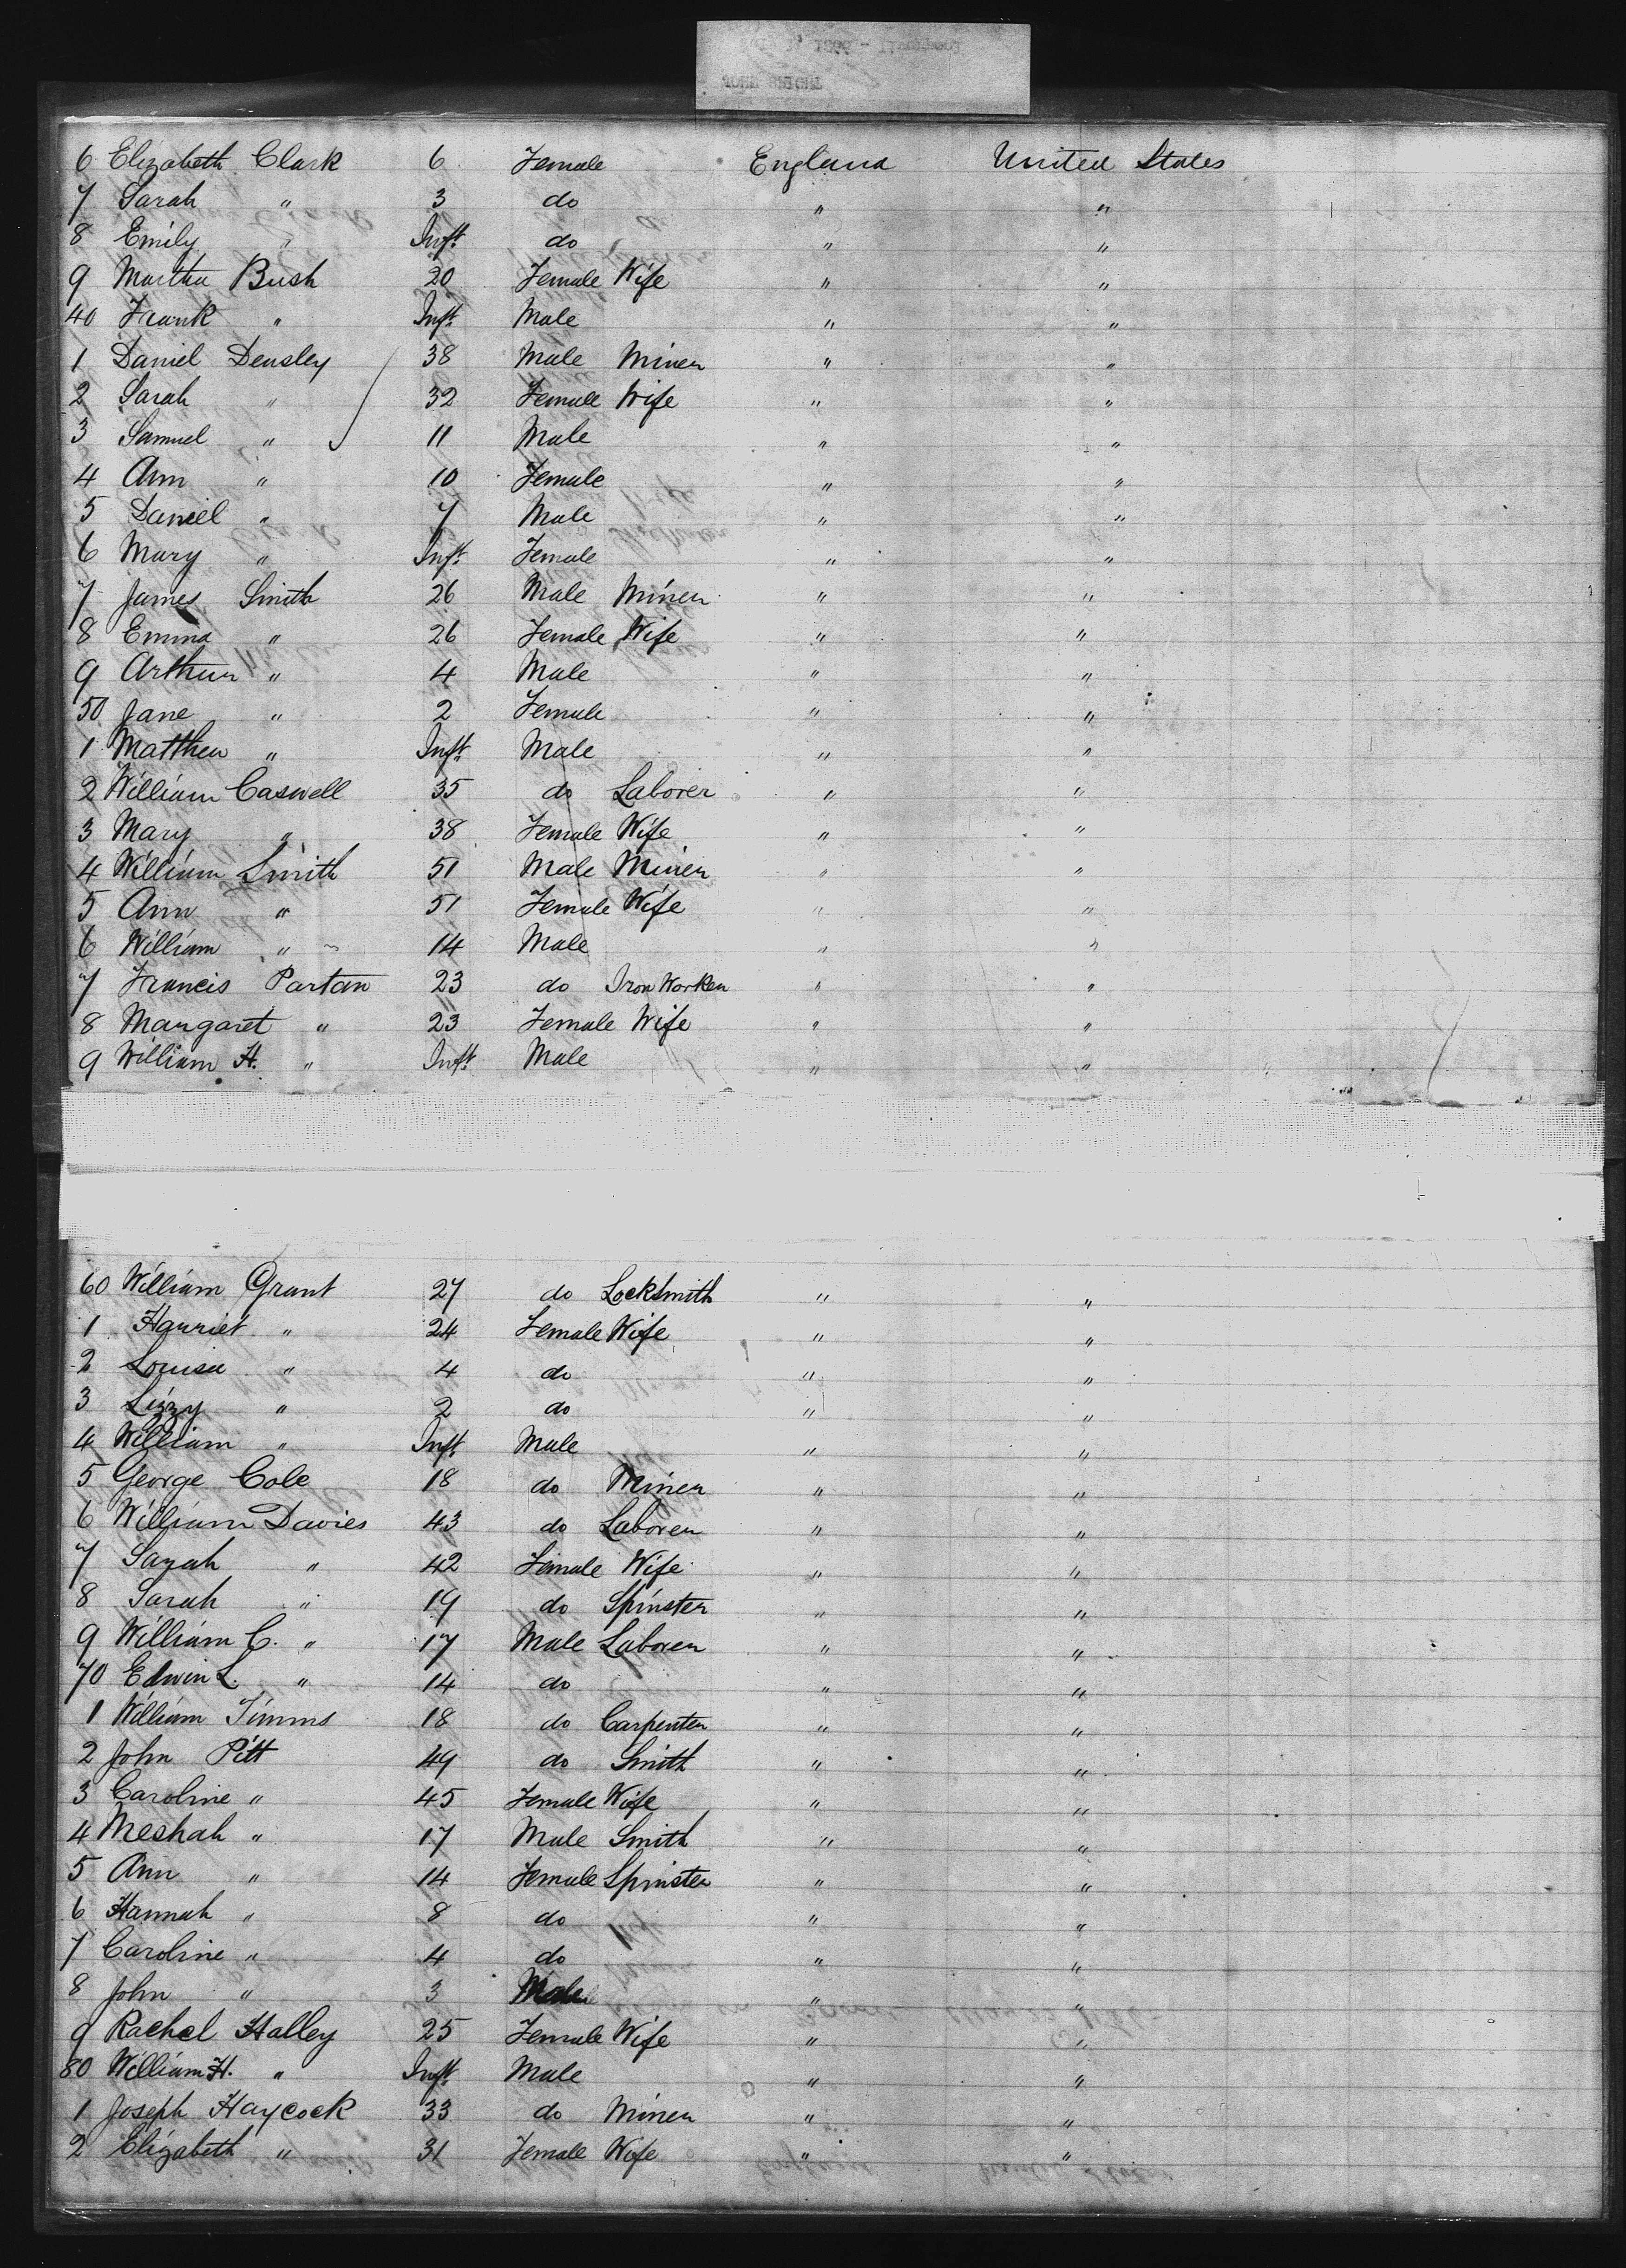 6 Elizabeth Clark 6 Female England United States
7 Sarah " 3 do " "
8 Emily " Inft. do " "
9 Martha Bush 20 Female Wife " "
40 Frank " Inft. Male " "
1 Daniel Densley 38 Male Miner " "
2 Sarah " 32 Female Wife " "
3 Samuel " 11 Male " "
4 Ann " 10 Female " "
5 Daniel " 7 Male " "
6 Mary " Inft. Female " "
7 James Smith 26 Male Miner " "
8 Emma " 26 Female Wife " "
9 Arthur " 4 Male " "
50 Jane " 2 Female " "
1 Matthew " Inft. Male " "
2 William Caswell 35 do Laborer " "
3 Mary " 38 Female Wife " "
4 William Smith 51 Male Miner " "
5 Ann " 51 Female Wife " "
6 William " 14 Male " "
7 Francis Partan 23 do Iron Worker " "
8 Margaret " 23 Female Wife " "
9 William H. " Inft. Male " "
60 William Grant 27 do Locksmith " "
1 Harriet " 24 Female Wife " "
2 Louisa " 4 do " "
3 Lizzy " 2 do " "
4 William " Inft. Male " "
5 George Cole 18 do Miner " "
6 William Davies 43 do Laborer " "
7 Sarah " 42 Female Wife " "
8 Sarah " 19 do Spinster " "
9 William C. " 17 Male Laborer " "
70 Edwin L. " 14 do " "
1 William Timms 18 do Carpenter " "
2 John Pitt 49 do Smith " "
3 Caroline " 45 Female Wife " "
4 Meshah " 17 Male Smith " "
5 Ann " 14 Female Spinster " "
6 Hannah " 8 do " "
7 Caroline " 4 do " "
8 John " 3 Male " "
9 Rachel Halley 25 Female Wife " "
80 William H. " Inft. Male " "
1 Joseph Haycock 33 do Miner " "
2 Elizabeth " 31 Female Wife " "